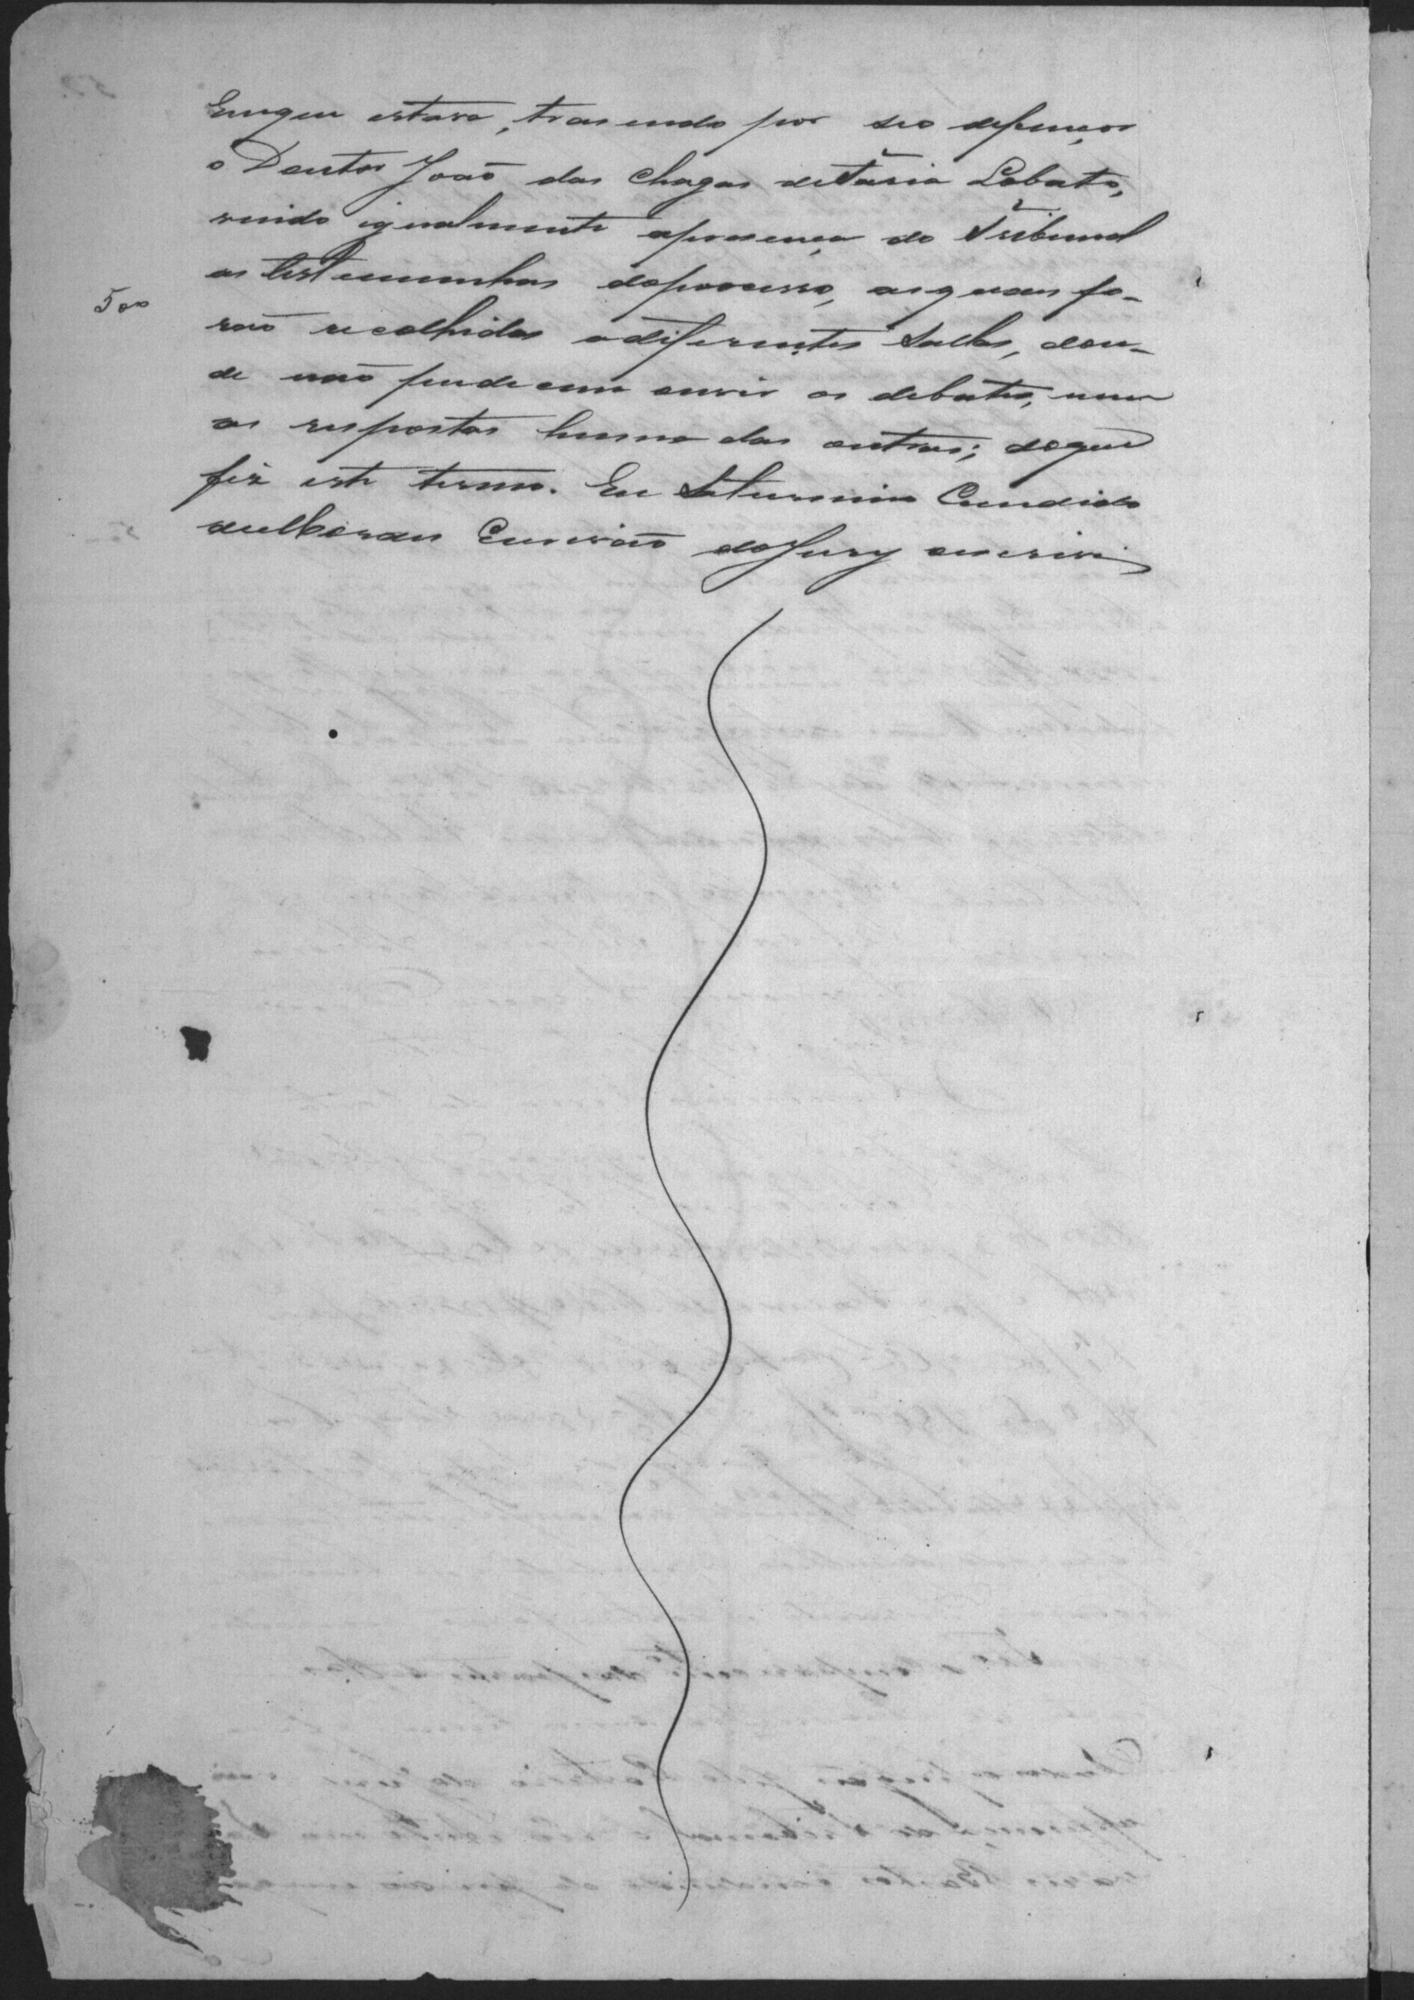 emque estava, trasendo por seo defençor
o Doutor João das Chagas deFaria Lobato,
vindo igualmente apresença do Tribunal
as testemunhas doprocesso, asquaes fo-
500
rão recolhidas adiferentes Sallas, don-
de não pudecem ouvir os debates, nem
as respostas humas das outras; doque
fiz este termo. Eu Saturnino Candido
Escrivão doJury escrivi